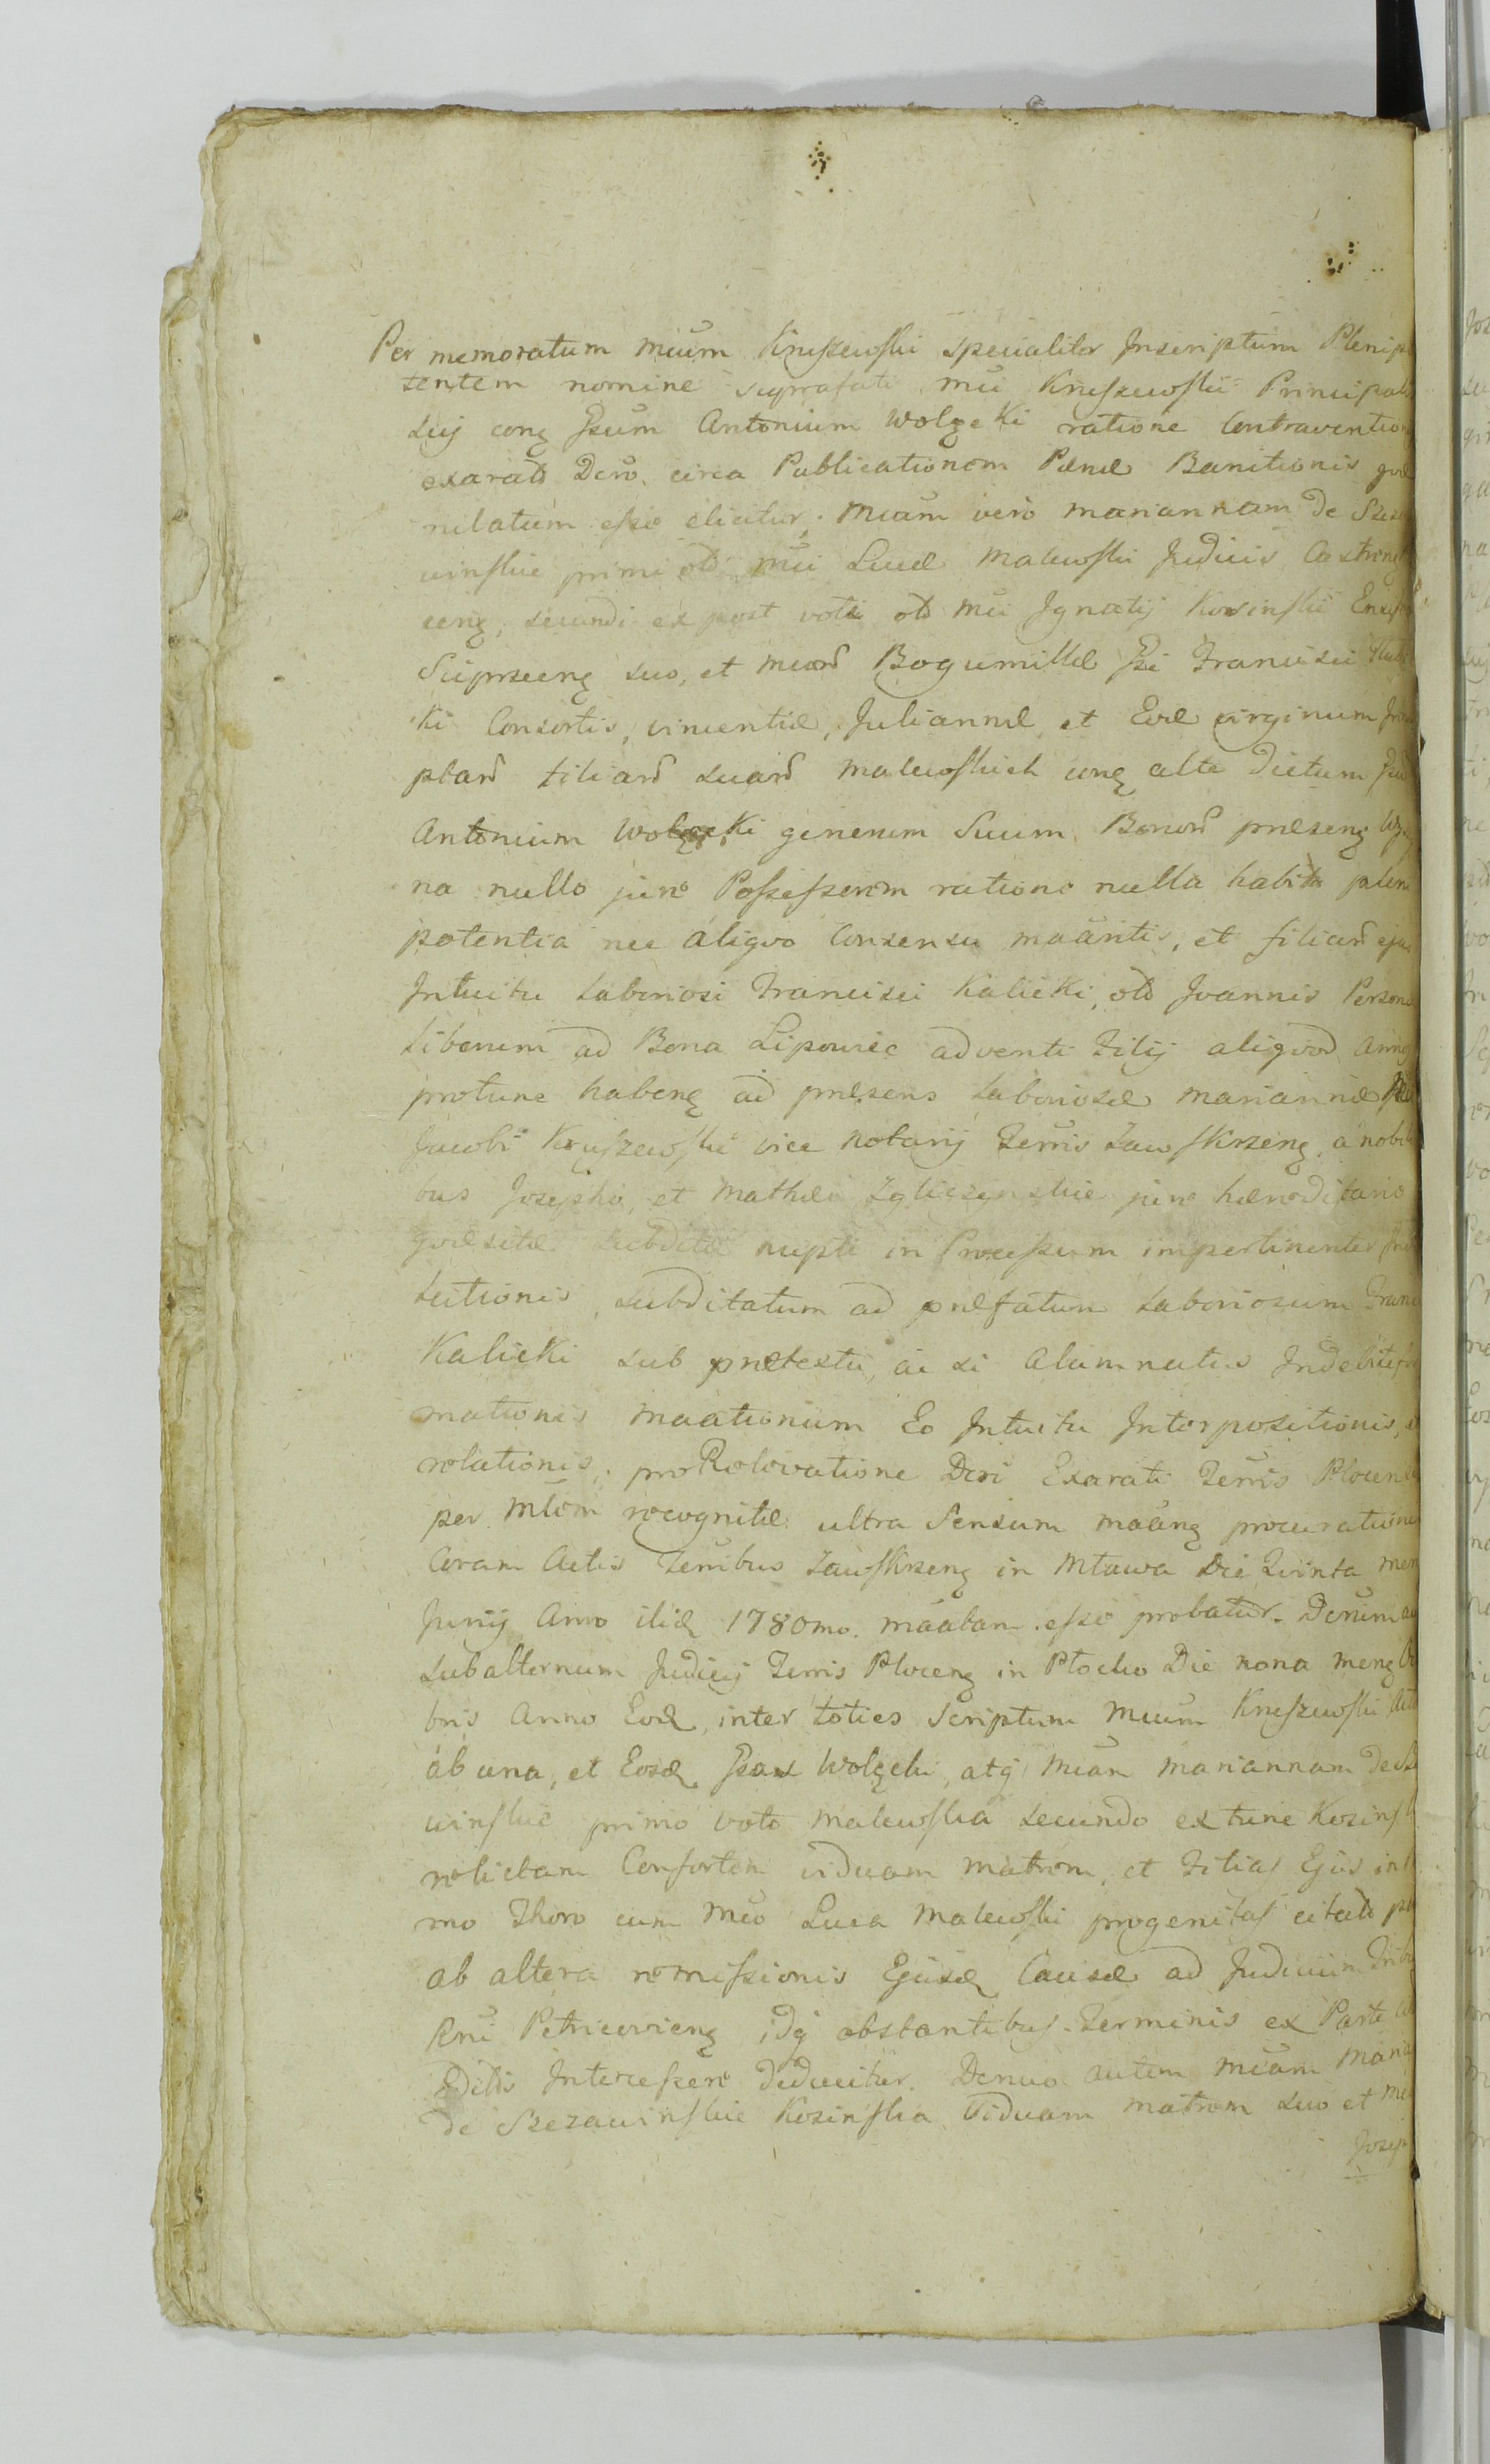 Per memoratum mũum Kruszewski specialiter Inscriptum Plenip
tentem nomine suprafati mũi Kruszewski Principalis
sui conꝫ Gsum Antonium Wolęcki ratione Contravention
exarato Dcro circa Publicationem Pænæ Banitionis
nilatum esse elicitur. Mũam vero Mariannam de
winskie primi olo mũi Lucæ Malewski Judicis Castren
cenꝫ, secundi ex post voti olo mũi Ignatij Kosinski
suo, et Bogumillæ Gsi Francisci
ki Consortis, vincentiæ, Juliannæ et Evæ virginum
filiarũ suarũ Malewskich conꝫ alte dictum
Antonium Wolęcki generum Suum Bonorũ præsenꝫ
na nullo jure Possessorem ratione nulla habita plen
potentia nec aliqvo Consensu maãntis, et filiarũ ejus
Intuitu Laboriosi Francisci Kalicki, olo Joannis Person
Liberum ad Bona Lipowiec adventi Filij aliqvod Annos
protunc habenꝫ ad præsens Laboriosæ Mariannæ
Jacobi Kruszewski vice Notarij Terris Zawskrzenꝫ, a nobili
bus Josepho, et Mathæo jure hæreditario
qvæsitæ subditæ nupti in Processum impertinenter
sectionis, subditatum ad præfatum Laboriosum Franc
Kalicki sub prætextu, ac si Alumnatus Indebite
mationis maãtionum Eo Intuitu Interpositionis, et
relationis, pro Relevatione Dcri Exarati Terris Plocen
per mũam recognitæ ultra Sensum maãnꝫ procuratione
Coram Actis Terribus Zawskrzenꝫ in Mława Die Qvinta men
Junij Anno iliꝫ 1780mo. maãtam esse probatur. Dcrum
subalternum Judicij Terris Plocenꝫ in Płocko Die nona menꝫ
bris Anno Eodꝫ, inter toties Scriptum Mũum Kruszewski
ab una, et Eosdꝫ Gsos Wolęcki, atqꝫ Mũam Mariannam de
winskie primo voto Malewska secundo extunc Kosinsk
relictam Consortem viduam Matrem, et Filias Ejus in
mo Thoro cum Mũo Luca Malewski progenitas citato
ab altera remissionis Ejusdꝫ Causæ ad Judicium Trib
Rni Petricovienꝫ idqꝫ obstantibus Terminis ex Parte
Editis Intercessere deducitur. Denuo autem Mũam Mari
de Szczawinskie Kosinska Viduam Matrem suo et
Joseph